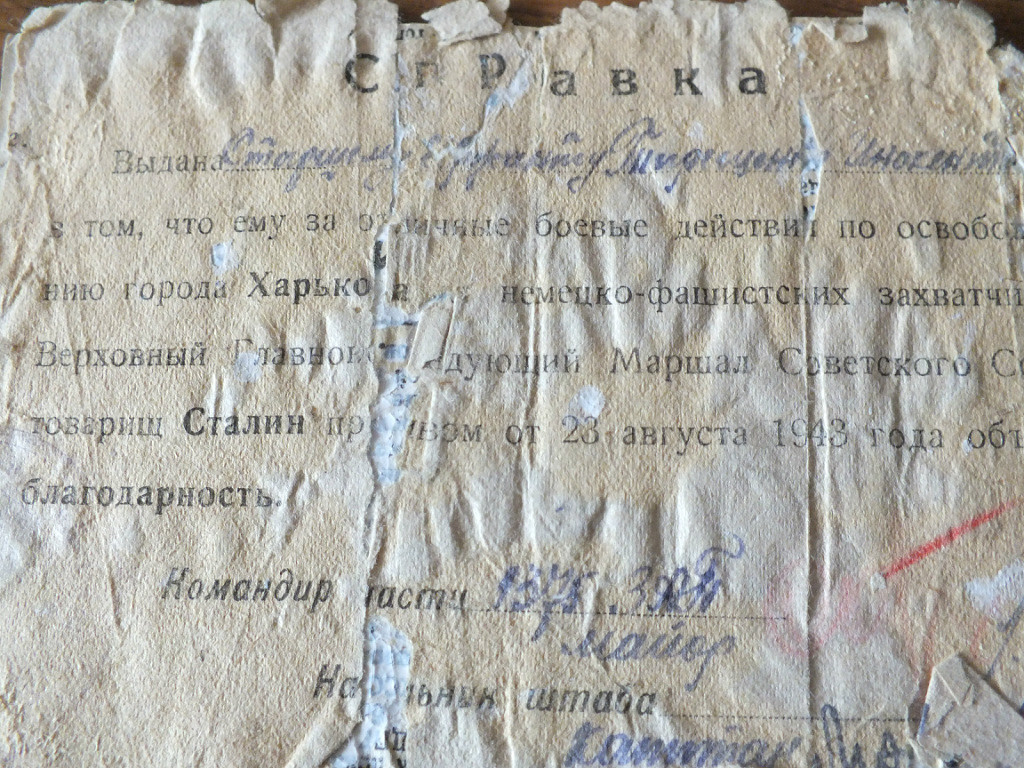 Справка
Выдана Старшему Сержанту
в том, что ему за отличные боевые действия по освобож
нию города Харькова немецко-фашистских захватчи
Верховный Главнок дующий Маршал Советского Со
товарищ Сталин пр ом от 23 августа 1943 года объ
благодарность.
Командир части
майор
На льник штаба
капитан